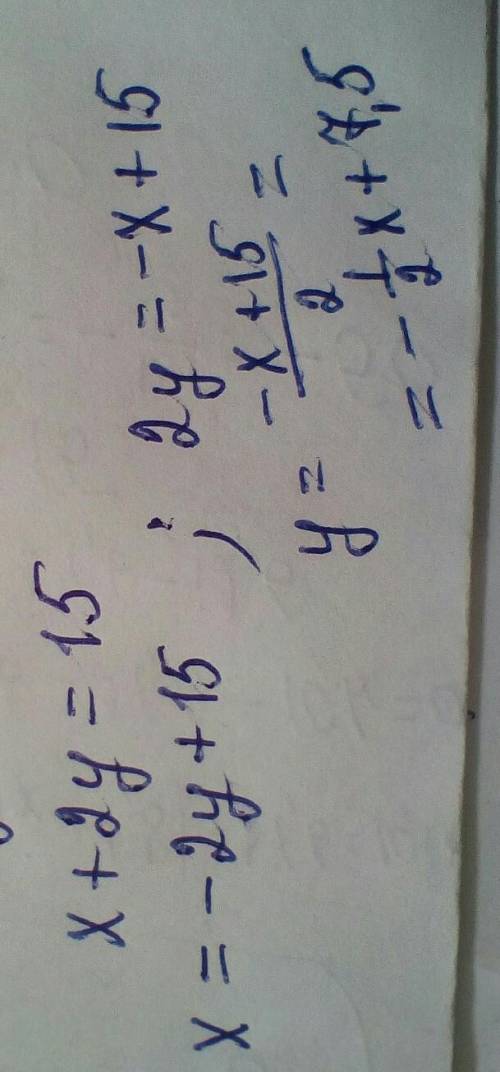 x + 2y = 15
x = -2y + 15 ; 2y = -x + 15
y = \frac{-x + 15}{2} =
= -\frac{1}{2}x + 7,5